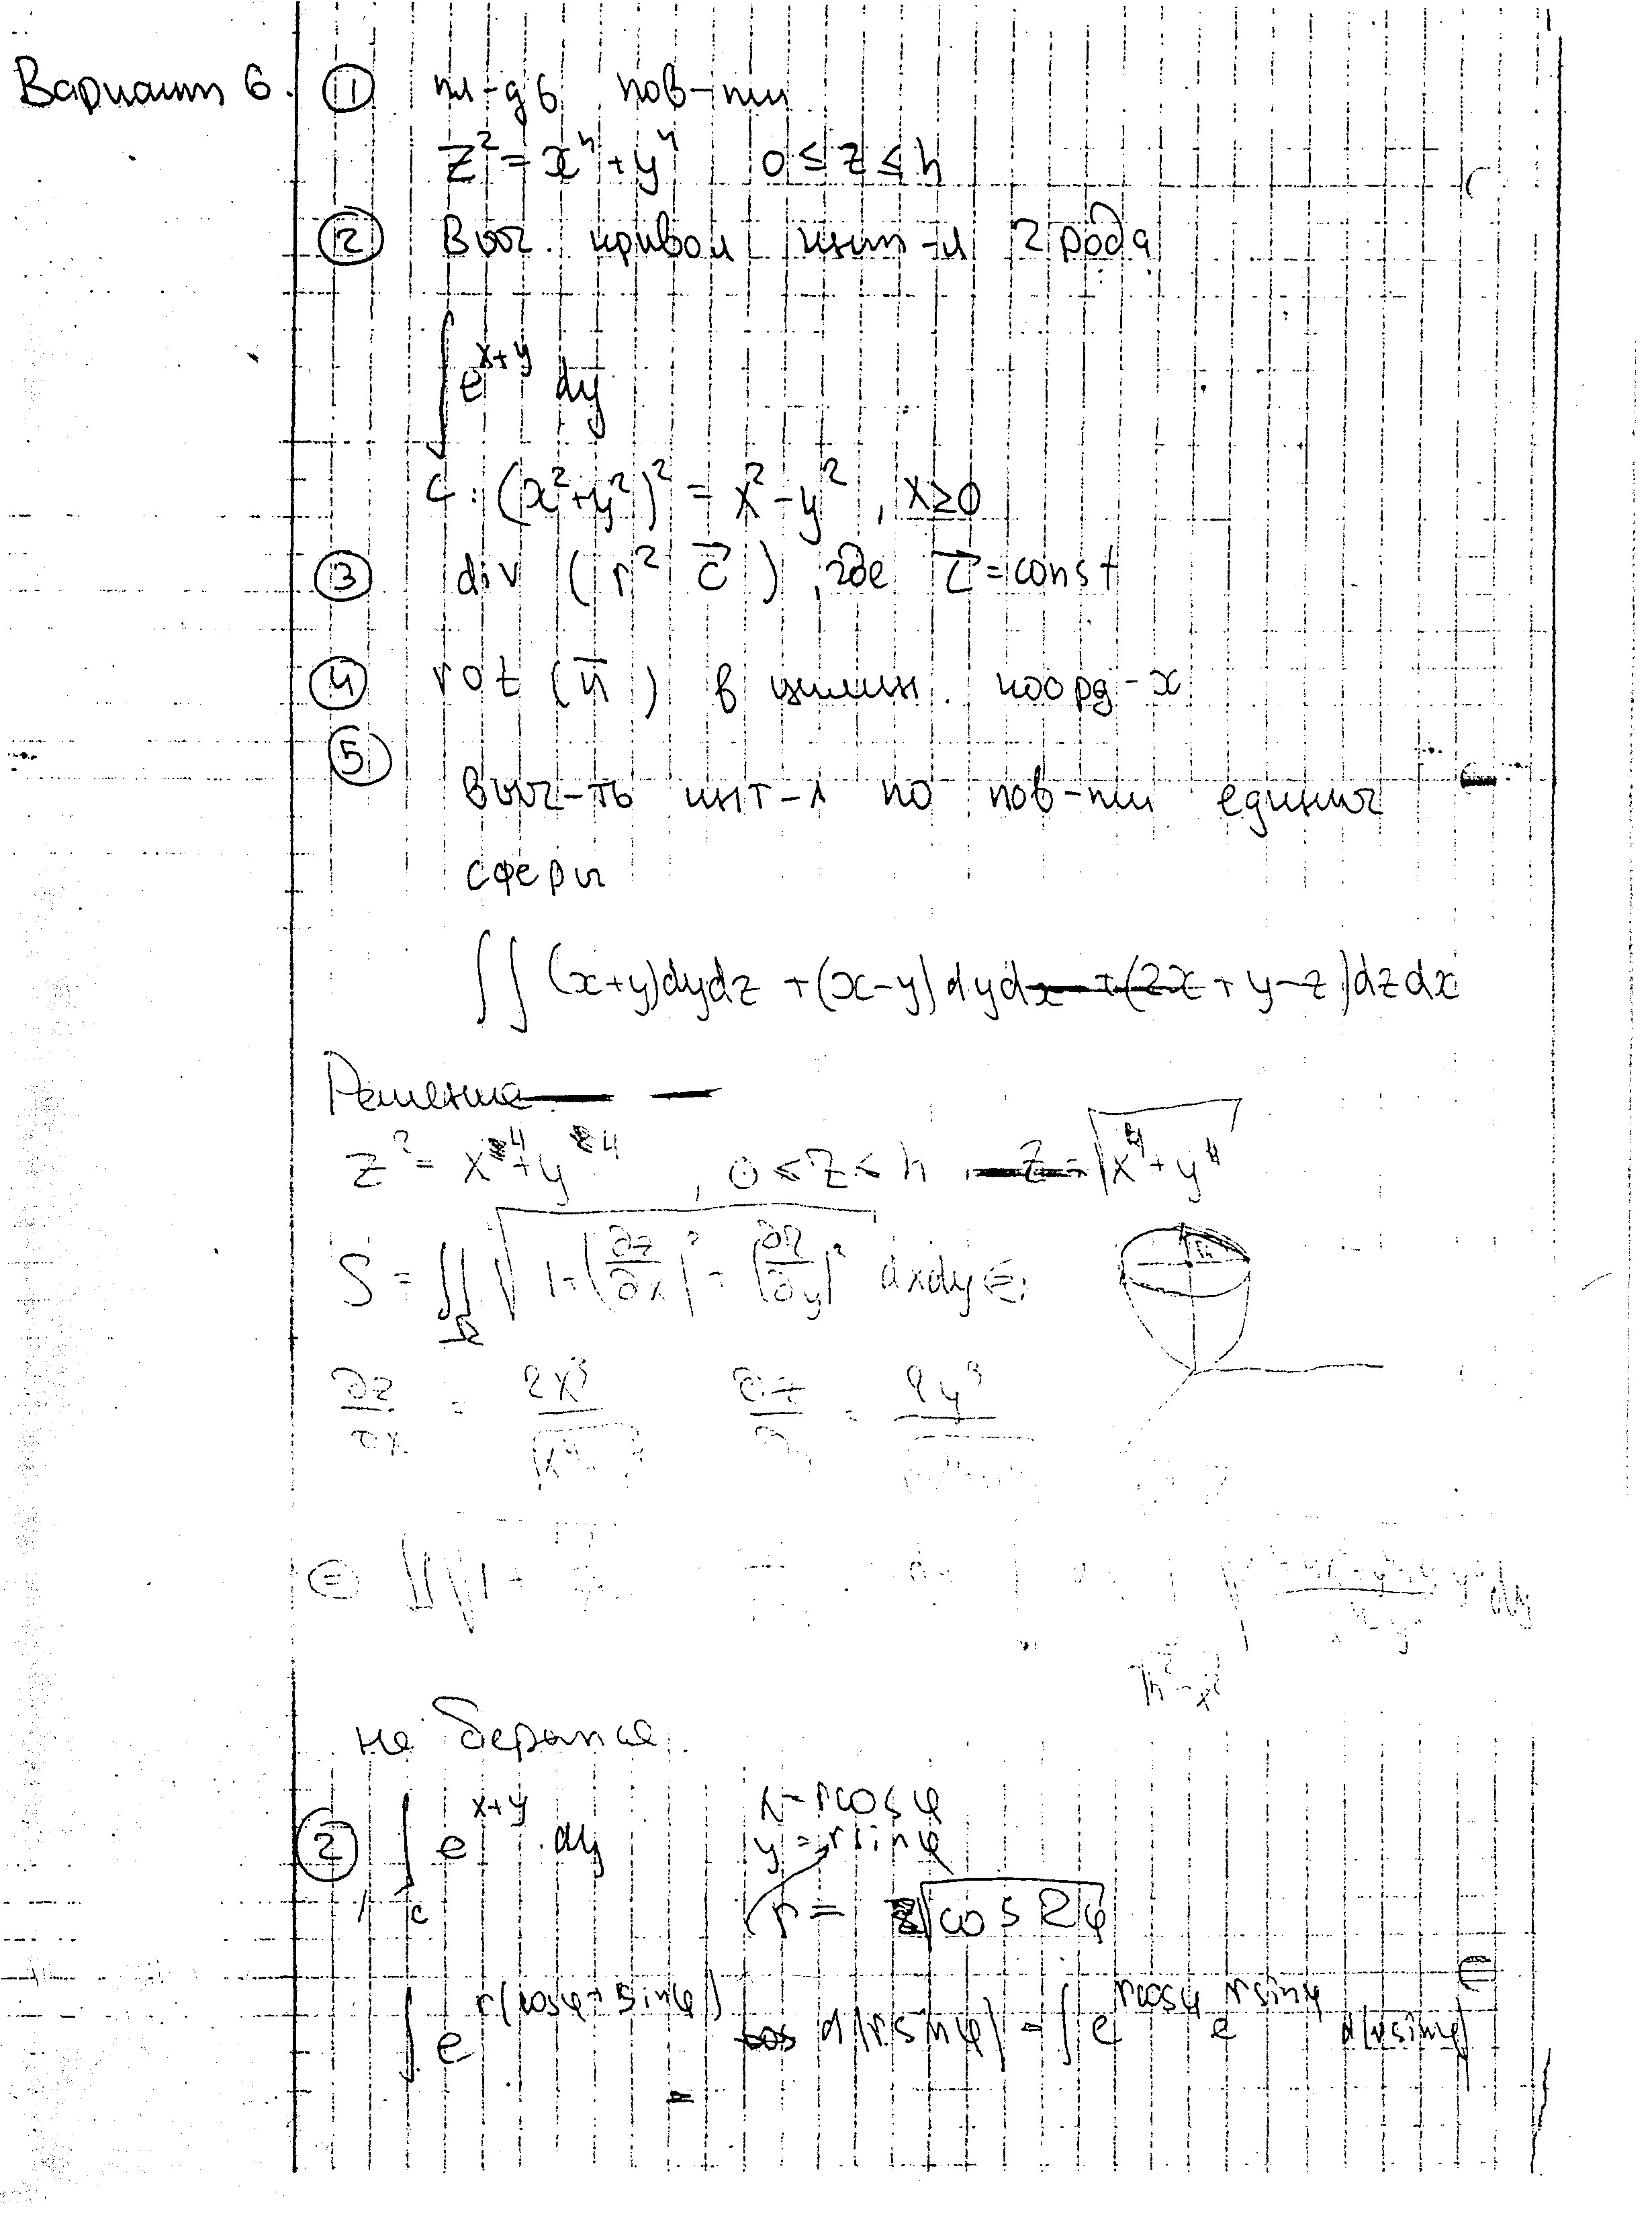 Вариант 6. ① пл-дь пов-ти
z² = x⁴ + y⁴   0 ≤ z ≤ h
② Выч. кривол инт-л 2 рода
∫ e^{x+y} dy
C: (x²+y²)² = x² - y², x ≥ 0
③ div (r² c⃗), где c⃗ = const
④ rot (n̄) в цилин. коорд-х
⑤
Выч-ть инт-л по пов-ти единич
сферы
∬ (x+y)dydz + (x-y)dydx + (2x+y-z)dzdx
Решение
z² = x⁴ + y⁴, 0 ≤ z ≤ h, z = √(x⁴+y⁴)
S = ∬ √(1+(∂z/∂x)²+(∂z/∂y)²) dxdy ⊜
∂z/∂x = 2x³/√(x⁴     ∂z/∂ = 2y³/√
⊜ ∬ √(1+     dy
не берется.
② ∫_C e^{x+y} · dy   x = r cos φ
y = r sin φ
r = √(cos 2φ)
∫ e^{r(cos φ + sin φ)} d(r sin φ) = ∫ e^{r cos φ} e^{r sin φ} d(r sin φ) ⊜
=